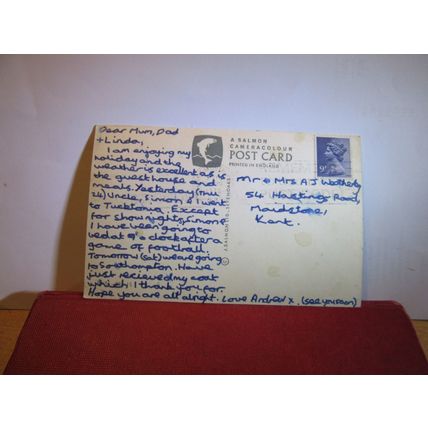 Dear Mum, Dad
+ Linda,
I am enjoying my
holiday and the
weather is excellent as is
the guest house and
meals. Yesterday (Thu
24) Uncle, Simon & I went
to Tucktonia. Except
for show nights Simon &
I have been going to
bed at 9 o'clock after a
game of football.
Tomorrow (Sat) we are going
to Southampton. Have
just recieved my coat
which I thank you for.
Hope you are all alright. Love Andrew x. (see you soon)
A SALMON
CAMERACOLOUR
POST CARD
PRINTED IN ENGLAND
© J. SALMON LTD., SEVENOAKS
9P
Mr & Mrs A J
54 Hastings Road,
Maidstone,
Kent.